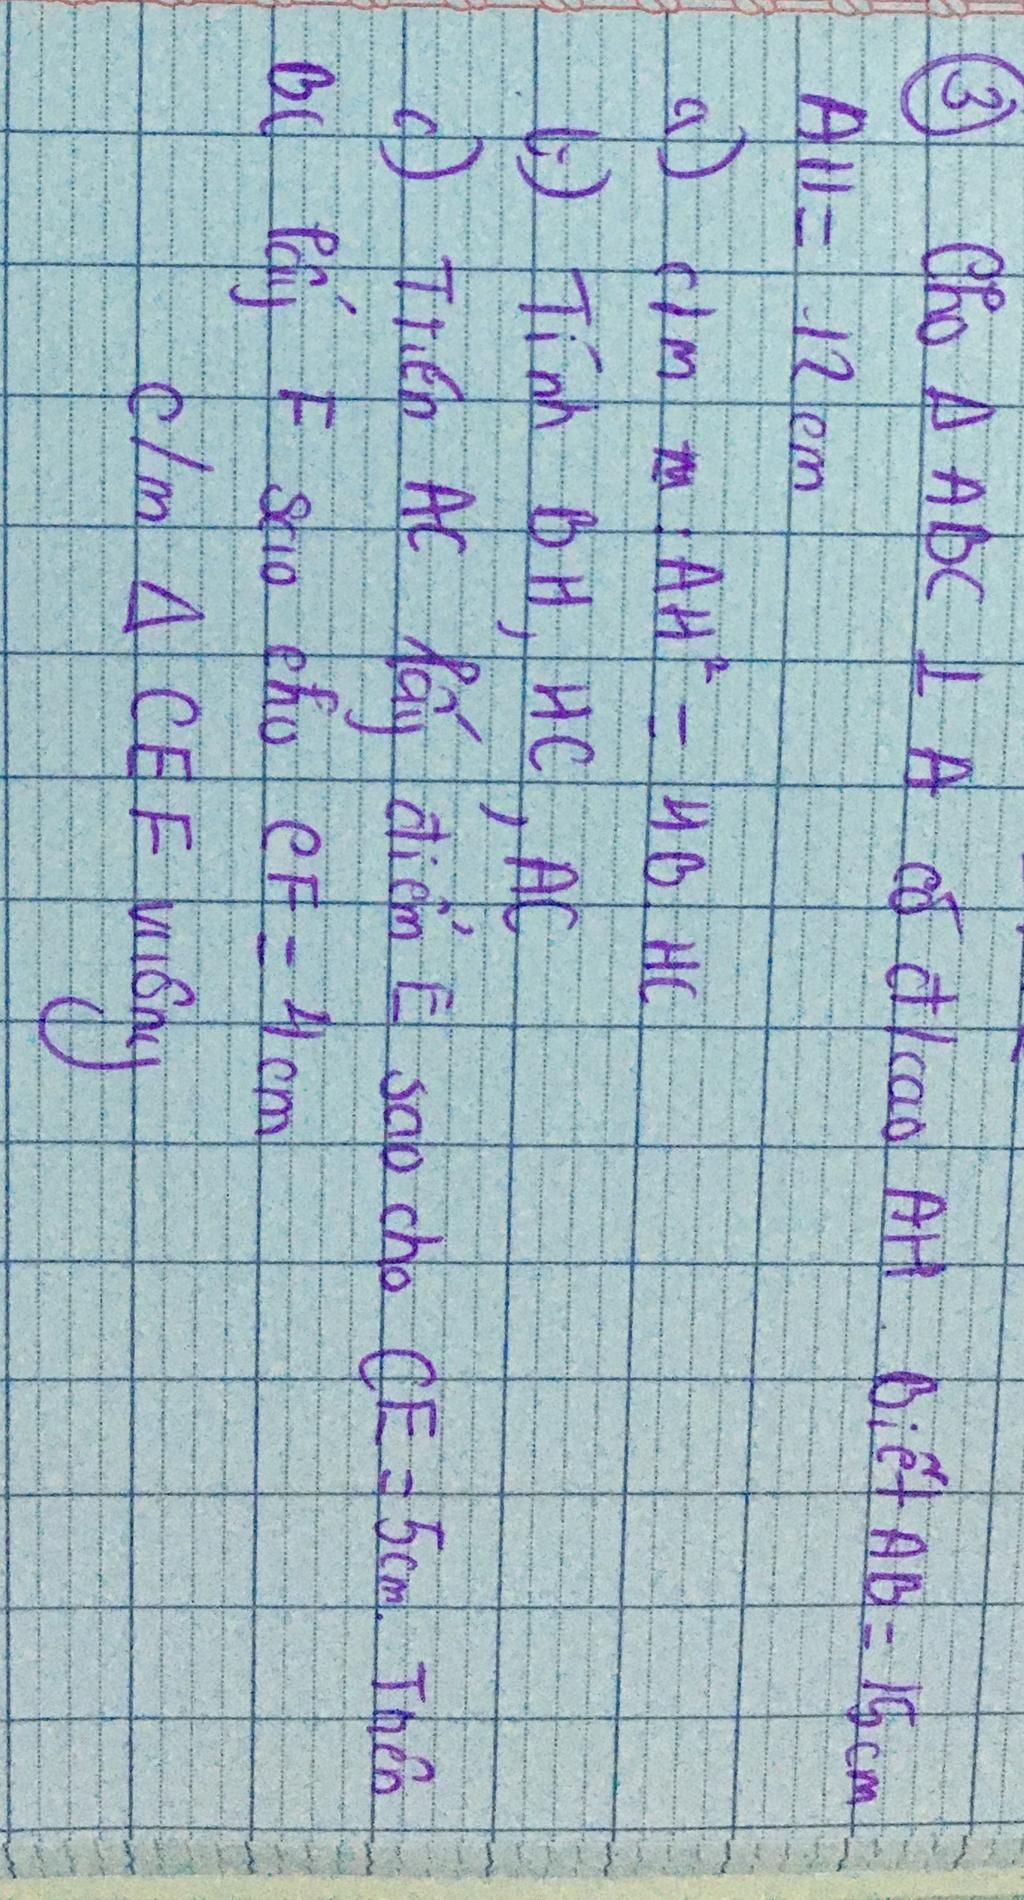 ③ Cho Δ ABC ⊥ A có đ/cao AH. Biết AB = 15cm
AH = 12 cm
a) c/m m : AH² = HB. HC
b) Tính BH, HC, AC
c) Trên AC lấy điểm E sao cho CE = 5cm. Trên
BC lấy F sao cho CF = 4cm
C/m Δ CEF vuông